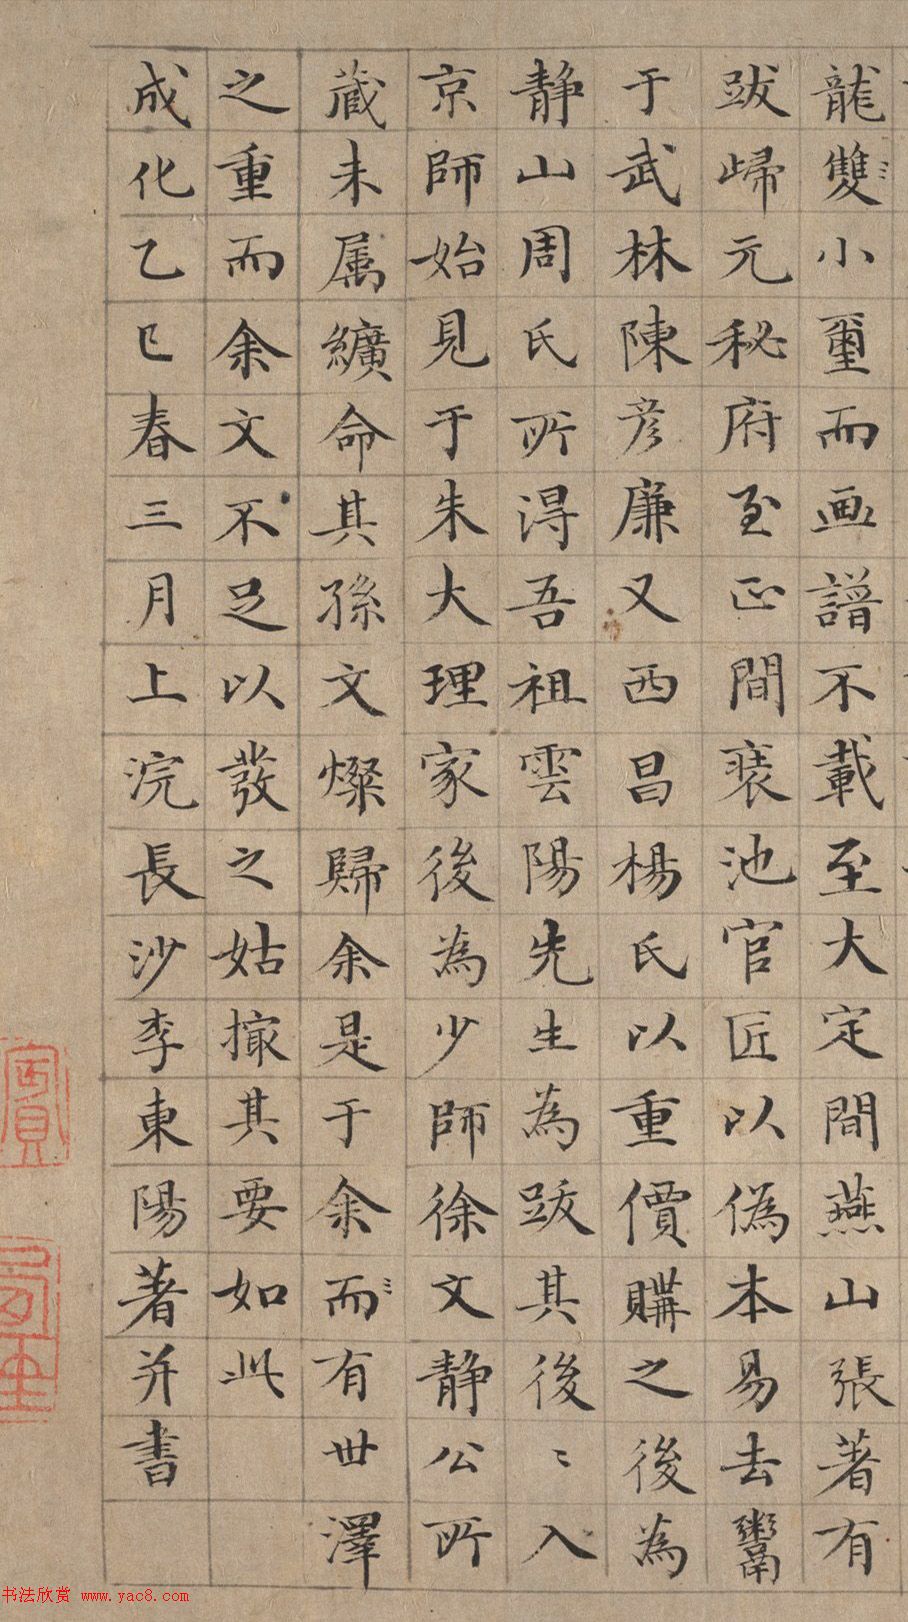 龍雙小璽而畫譜不載至大定間燕山張著有
跋歸元秘府至正間裴池官匠以偽本易去鬻
于武林陳彥廉又西昌楊氏以重價購之後為
靜山周氏所得吾祖雲陽先生為跋其後〻入
京師始見于朱大理家後為少師徐文靜公所
藏未属纊命其孫文燦歸余是于余而有世澤
之重而余文不足以發之姑撮其要如此
成化乙巳春三月上浣長沙李東陽著并書
书法欣赏 www.yac8.com